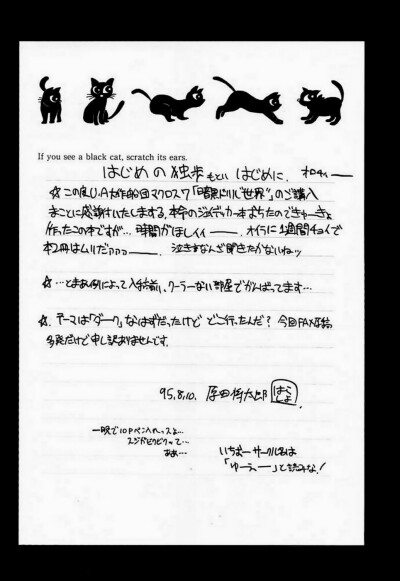 If you see a black cat, scratch its ears.
はじめの独歩 もとい はじめに.
☆ この度U.A大作戦団マクロスワ「暗黒ドリル世界」のご購入
まことに感謝いたしまする. 本命の
本が
作ったこの本ですが… 時間がほしィィ――. オイラに1週間チョイで
本2冊はムリだァァァ――. 泣き言なんざ聞きたかないねッ
☆ …とまあ例によって入稿前, クーラーない部屋でがんばってます…
☆. テーマは「ダーク」なはずだったけど どこ行ったんだ? 今回FAX原稿
多発だけで申し訳ありませんです.
95.8.10. 原田
はら
しょ
一晩で10Pペン入れっスよ…
スジがピクピクって…
ああ…
いちおーサークル名は
「ゆーえー」と読みな!